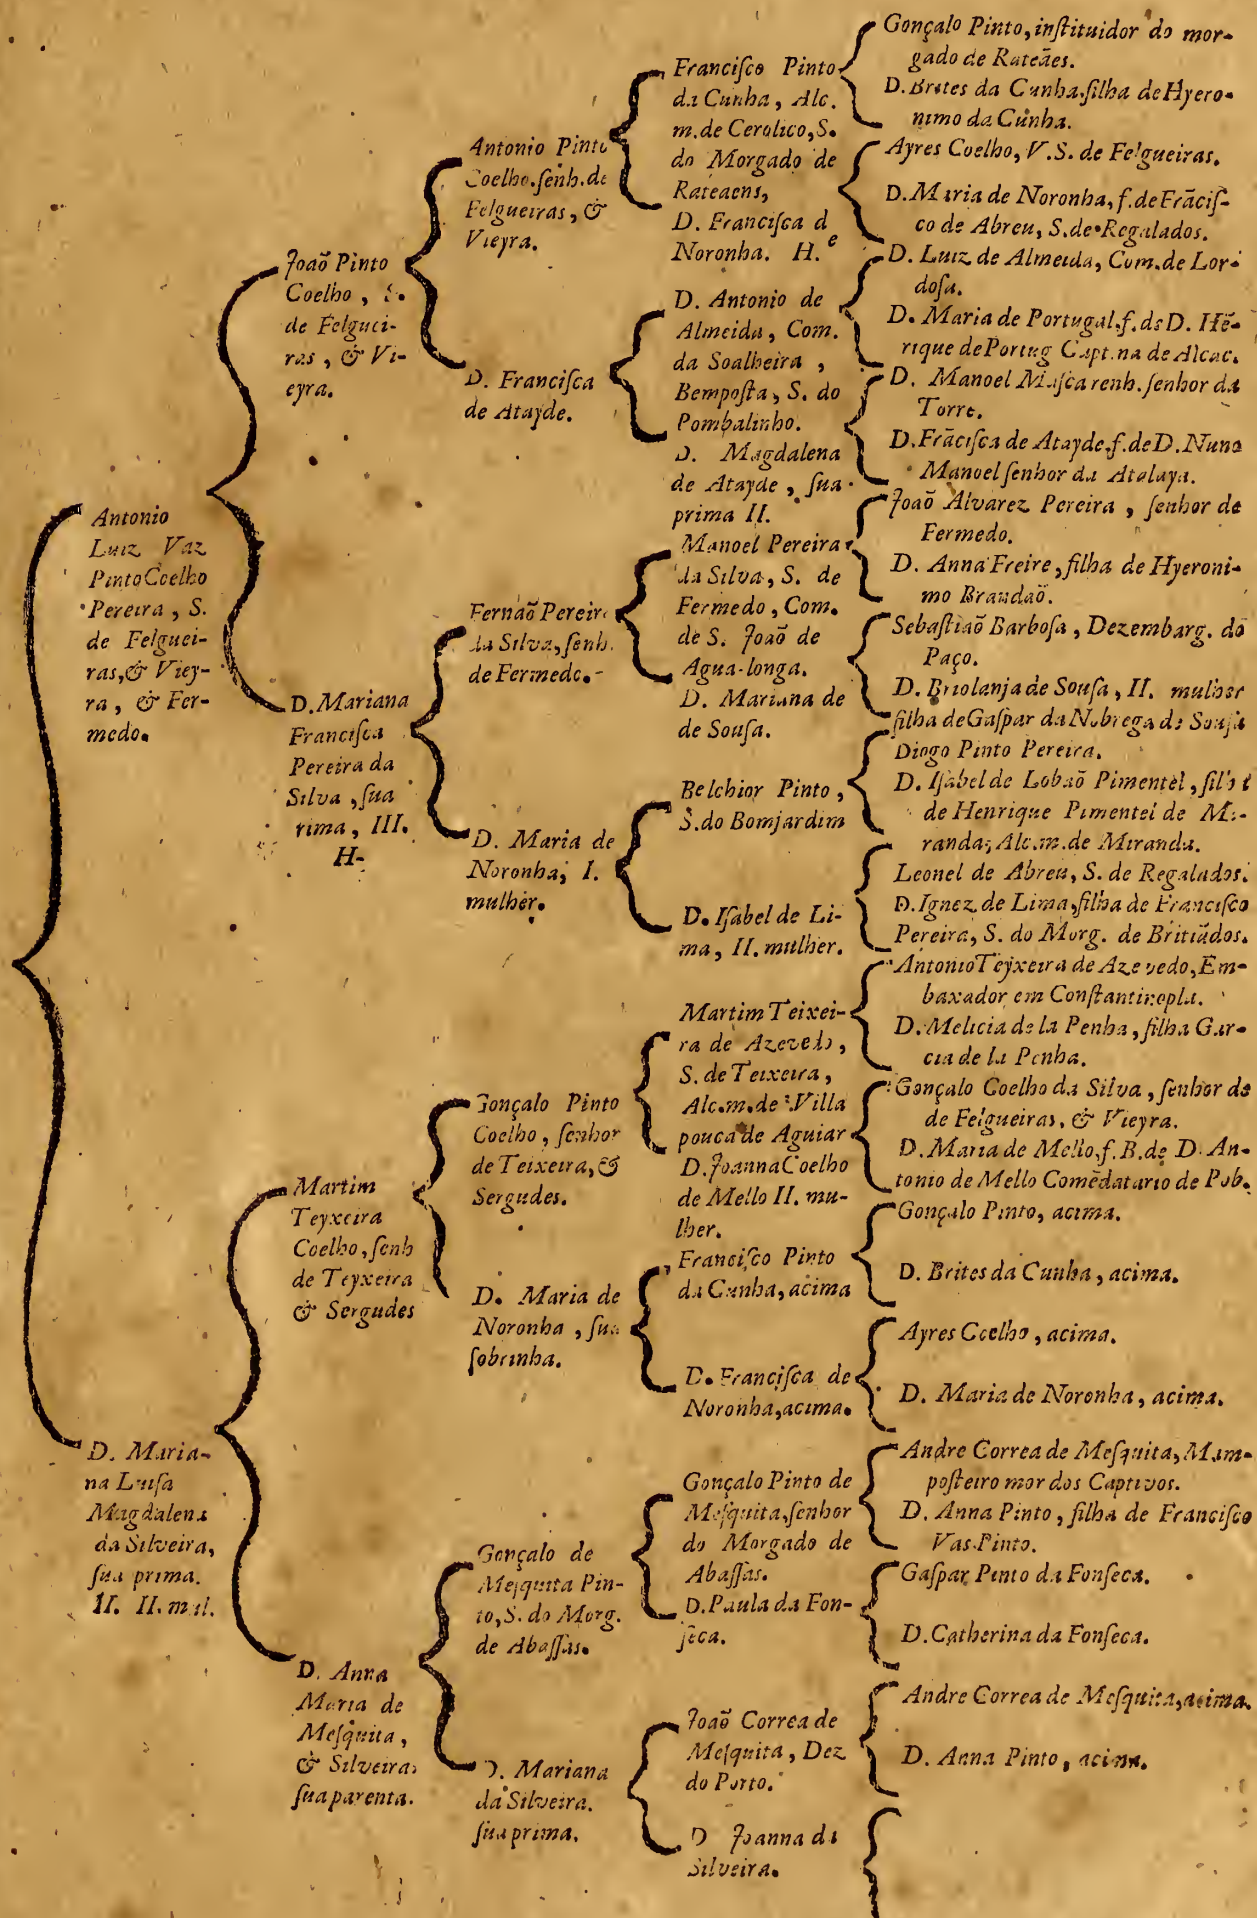 Antonio
Luiz Vaz
Pinto Coelho
Pereira, S.
de Felguei-
ras, & Viey-
ra, & Fer-
medo.
D. Maria-
na Luisa
Magdalena
da Silveira,
ſua prima.
II. II. mul.
Joaõ Pinto
Coelho, S.
de Felguei-
ras, & Vi-
eyra.
D. Mariana
Franciſca
Pereira da
Silva, ſua
rima, III.
H.
Martim
Teyxeira
Coelho, ſenh
de Teyxeira
& Sergudes
D. Anna
Maria de
Meſquita,
& Silveira,
ſua parenta.
Antonio Pinto
Coelho. ſenh. de
Felgueiras, &
Vieyra.
D. Franciſca
de Atayde.
Fernaõ Pereir
da Silva, ſenh.
de Fermedo.
D. Maria de
Noronha, I.
mulher.
Gonçalo Pinto
Coelho, ſenhor
de Teixeira, &
Sergudes.
D. Maria de
Noronha, ſua
ſobrinha.
Gonçalo de
Meſquita Pin-
to, S. do Morg.
de Abaſſas.
D. Mariana
da Silveira.
ſua prima.
Franciſco Pinto
da Cunha, Alc.
m. de Cerolico, S.
do Morgado de
Rateaens,
D. Franciſca d
Noronha. H. e
D. Antonio de
Almeida, Com.
da Soalheira,
Bempoſta, S. do
Pombalinho.
D. Magdalena
de Atayde, ſua
prima II.
Manoel Pereira
da Silva, S. de
Fermedo, Com.
de S. Joaõ de
Agua-longa.
D. Mariana de
de Souſa.
Belchior Pinto,
S. do Bomjardim
D. Iſabel de Li-
ma, II. mulher.
Martim Teixei-
ra de Azevedo,
S. de Teixeira,
Alc. m. de Villa
pouca de Aguiar
D. Joanna Coelho
de Mello II. mu-
lher.
Franciſco Pinto
da Cunha, acima
D. Franciſca de
Noronha, acima.
Gonçalo Pinto de
Meſquita, ſenhor
do Morgado de
Abaſſas.
D. Paula da Fon-
ſeca.
Joaõ Correa de
Meſquita, Dez
do Porto.
D Joanna da
Silveira.
Gonçalo Pinto, inſtituidor do mor-
gado de Rateães.
D. Brites da Cunha, filha de Hyero-
nimo da Cunha.
Ayres Coelho, V. S. de Felgueiras.
D. Maria de Noronha, f. de Frãciſ-
co de Abreu, S. de Regalados.
D. Luiz de Almeida, Com. de Lor-
doſa.
D. Maria de Portugal. f. de D. Hẽ-
rique de Portug Capt. na de Alcac.
D. Manoel Maſcarenh. ſenhor da
Torre.
D. Frãciſca de Atayde. f. de D. Nuno
Manoel ſenhor da Atalaya.
Joaõ Alvarez Pereira, ſenhor de
Fermedo.
D. Anna Freire, filha de Hyeroni-
mo Brandaõ.
Sebaſtiaõ Barboſa, Dezembarg. do
Paço.
D. Briolanja de Souſa, II. mulher
filha de Gaſpar da Nobrega de Souſa
Diogo Pinto Pereira.
D. Iſabel de Lobaõ Pimentel, filha
de Henrique Pimentel de Mi-
randa, Alc. m. de Miranda.
Leonel de Abreu, S. de Regalados.
D. Ignez de Lima, filha de Franciſco
Pereira, S. do Morg. de Britiãdos.
Antonio Teyxeira de Azevedo, Em-
baxador em Conſtantinopla.
D. Melicia de la Penha, filha Gar-
cia de la Penha.
Gonçalo Coelho da Silva, ſenhor de
de Felgueiras, & Vieyra.
D. Maria de Mello, f. B. de D. An-
tonio de Mello Comẽdatario de Pob.
Gonçalo Pinto, acima.
D. Brites da Cunha, acima.
Ayres Coelho, acima.
D. Maria de Noronha, acima.
Andre Correa de Meſquita, Mam-
poſteiro mor dos Captivos.
D. Anna Pinto, filha de Franciſco
Vas Pinto.
Gaſpar Pinto da Fonſeca.
D. Catherina da Fonſeca.
Andre Correa de Meſquita, acima.
D. Anna Pinto, acima.